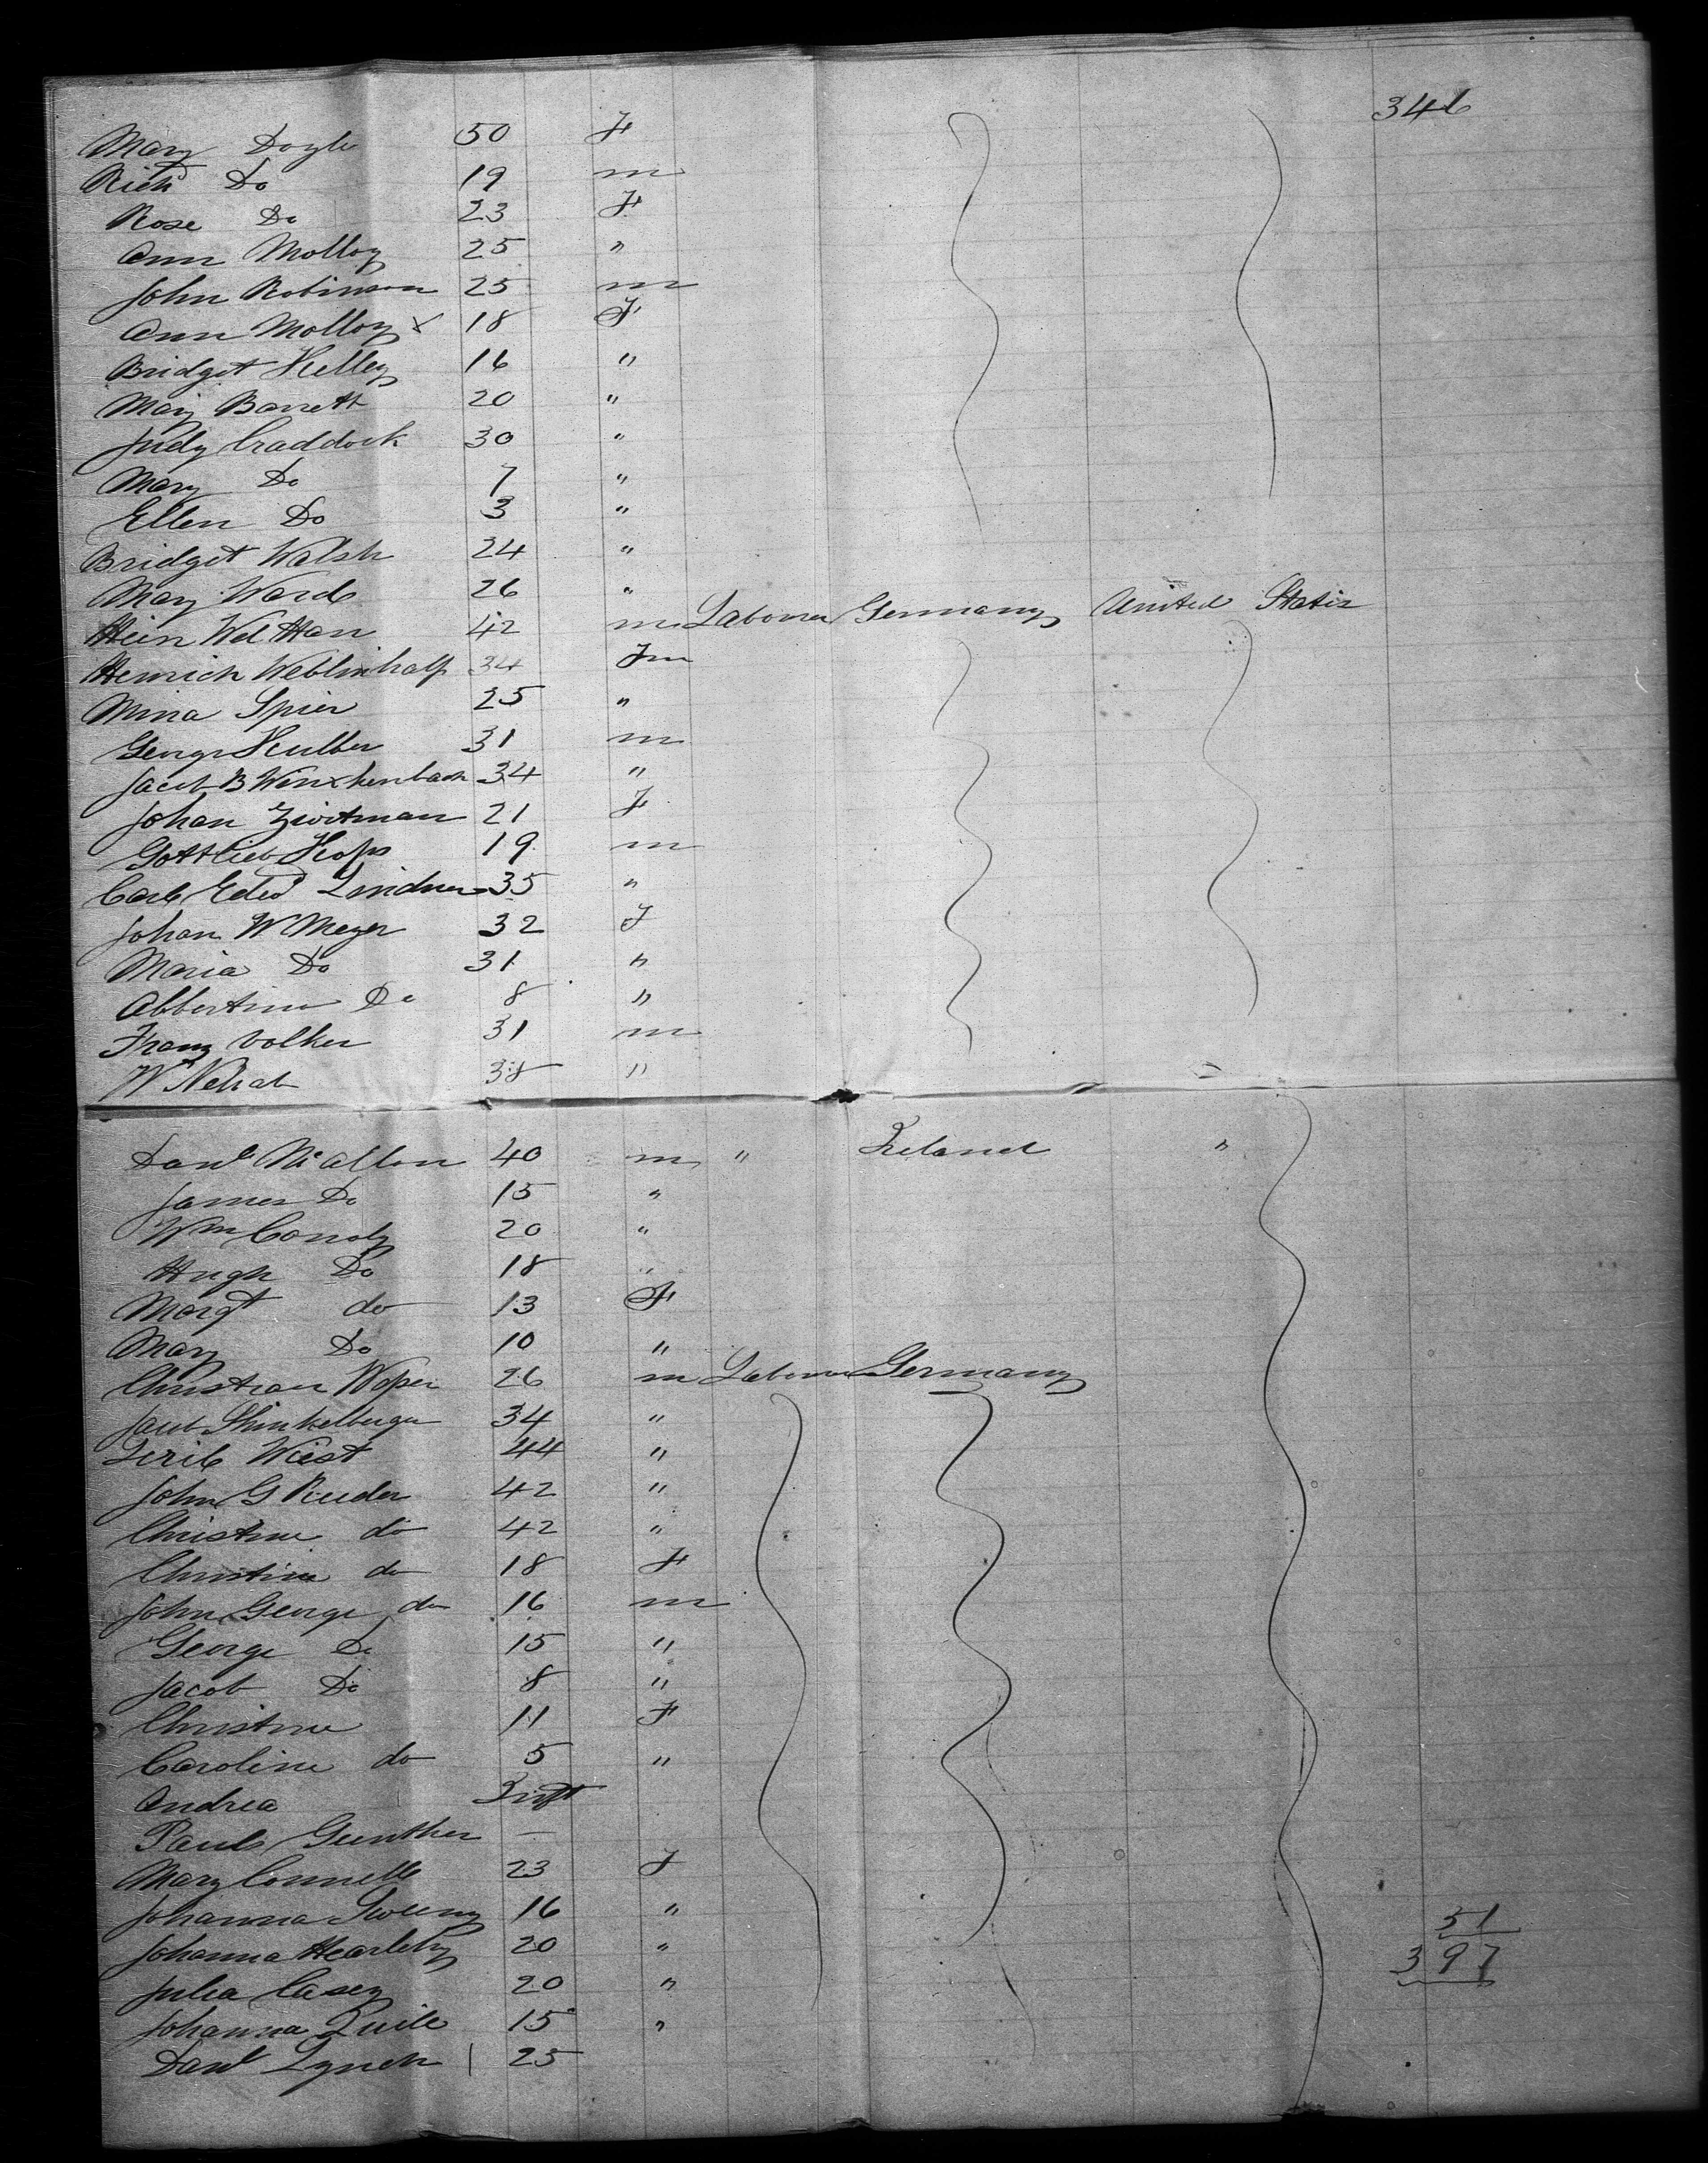 346
Mary Doyle 50 F
Richd Do 19 m
Rose Do 23 F
Ann Molloy 25 "
John Robinson 25 m
Ann Molloy x 18 F
Bridget Kelley 16 "
Mary Barrett 20 "
Judy Craddock 30 "
Mary Do 7 "
Ellen Do 3 "
Bridget Walsh 24 "
Mary Ward 26 "
Hein 42 m Laborer Germany United States
Henrich 34
Mina Spier 25 "
George 31 m
Jacob B 34 "
Johan 21 F
Gottlieb 19 m
Carl Edwd Lindner 35 "
Johan W Meyer 32 F
Maria Do 31 "
Albertine Do 8 "
Franz Volker 31 m
Wm 38 "
Danl McAllen 40 m " Ireland "
James Do 15 "
Wm Conoly 20 "
Hugh Do 18 "
Margt do 13 F
Mary Do 10 "
Christian 26 m Laborer Germany
Jacob 34 "
44 "
John G 42 "
Christine do 42 "
Christine do 18 F
John George do 16 m
George Do 15 "
Jacob Do 8 "
Christine 11 F
Caroline do 5 "
Andrea Inft
Paul Gunther —
Mary Connell 23 F
Johanna Sweeny 16 " 51
Johanna 20 " 397
Julia Casey 20 "
Johanna Quile 15 "
Danl Lynch 25